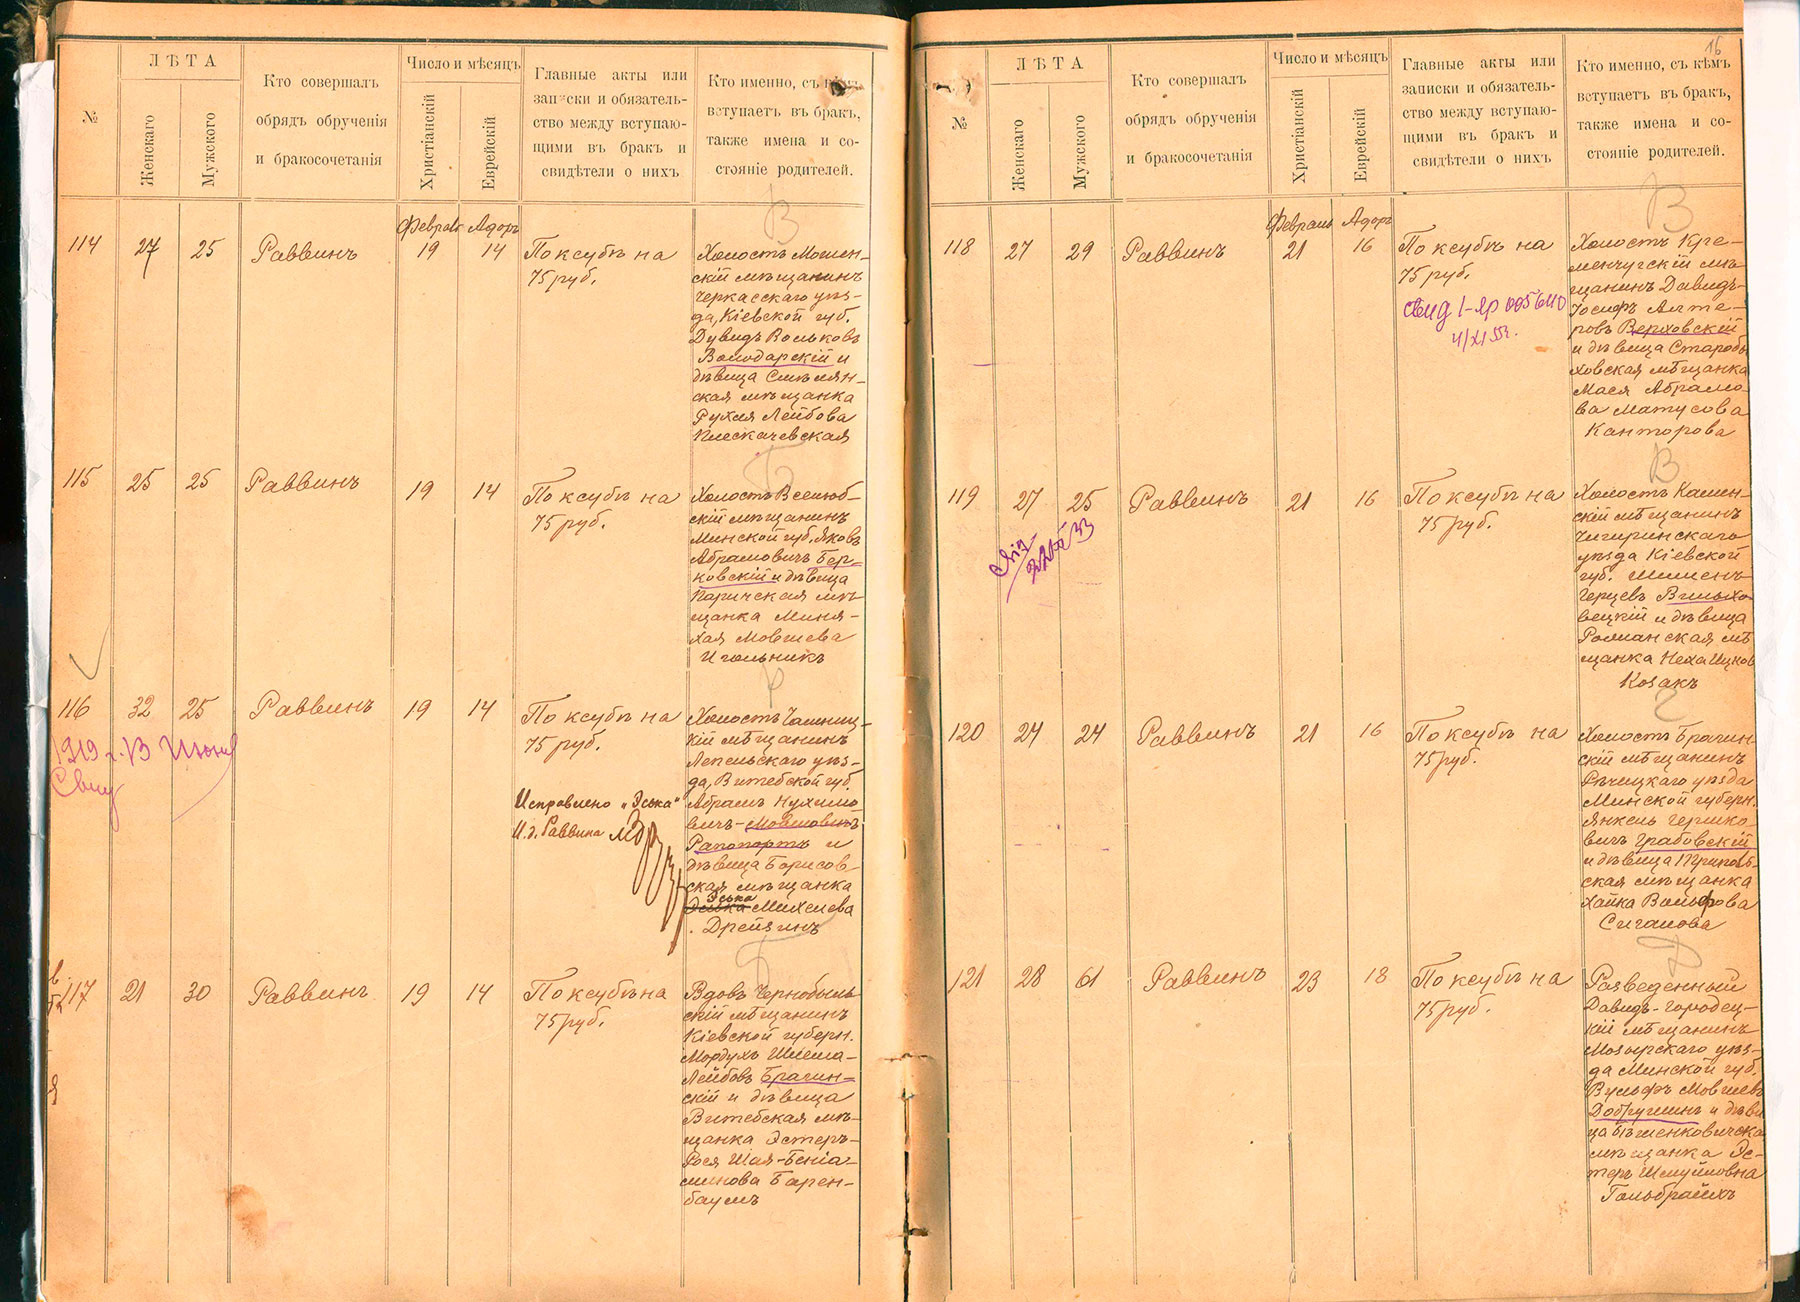 №
ЛѢТА
Женскаго
Мужского
Кто совершалъ
обрядъ обрученія
и бракосочетанія
Число и мѣсяцъ
Христіанскій
Еврейскій
Главные акты или
записки и обязатель-
ство между вступаю-
щими въ бракъ и
свидѣтели о нихъ
Кто именно, съ кѣмъ
вступаетъ въ бракъ,
также имена и со-
стояніе родителей.
В
114 27 25 Раввинъ Февраль 19 Адоръ 14
По ксубѣ на
75 руб.
Холостъ Мошен-
скій мѣщанинъ
Черкасскаго уѣз-
да, Кіевской губ.
Дувидъ Вольковъ
Володарскій и
дѣвица Смѣлян-
ская мѣщанка
Рухля Лейбова
Плескачевская
Б
115 25 25 Раввинъ 19 14
По ксубѣ на
75 руб.
Холостъ Вселюб-
скій мѣщанинъ
Минской губ. Яковъ
Абрамовичъ Бер-
ковскій и дѣвица
Паричская мѣ-
щанка Миня-
Хая Мовшева
Игольникъ
Р
116 32 25 Раввинъ 19 14
1919 г. В Июня
По ксубѣ на
75 руб.
Исправлено „Эська"
И.д. Раввина
Холостъ Чашниц-
кій мѣщанинъ
Лепельскаго уѣз-
да, Витебской губ.
Абрамъ Нухимо-
вичъ-Мовшовичъ
Рапопортъ и
дѣвица Борисов-
ская мѣщанка
Эська
Михелева
Дрейзинъ
Б
117 21 30 Раввинъ 19 14
По ксубѣ на
75 руб.
Вдовъ Чернобыль-
скій мѣщанинъ
Кіевской губерн.
Мордухъ Шлема-
Лейбовъ Брагин-
скій и дѣвица
Витебская мѣ-
щанка Эстеръ-
Рося Шая-Беніа-
минова Барен-
баумъ
16
№
ЛѢТА
Женскаго
Мужского
Кто совершалъ
обрядъ обрученія
и бракосочетанія
Число и мѣсяцъ
Христіанскій
Еврейскій
Главные акты или
записки и обязатель-
ство между вступаю-
щими въ бракъ и
свидѣтели о нихъ
Кто именно, съ кѣмъ
вступаетъ въ бракъ,
также имена и со-
стояніе родителей.
В
118 27 29 Раввинъ Февраль 21 Адоръ 16
По ксубѣ на
75 руб.
Холостъ Кре-
менчугскій мѣ-
щанинъ Давидъ-
Іосифъ Алте-
ровъ Верховскій
и дѣвица Старобы-
ховская мѣщанка
Мася Абрамо-
ва Матусова
Канторова
В
119 27 25 Раввинъ 21 16
По ксубѣ на
75 руб.
Холостъ Камен-
скій мѣщанинъ
Чигиринскаго
уѣзда Кіевской
губ. Шимень-
Герцевъ Вильхо-
вецкій и дѣвица
Романская мѣ-
щанка Неха Ицков
Козакъ
Г
120 24 24 Раввинъ 21 16
По ксубѣ на
75 руб.
Холостъ Брагин-
скій мѣщанинъ
Рѣчицкаго уѣзда
Минской губерн.
Янкель Гершко-
вичъ Грабовскій
и дѣвица Триполь-
ская мѣщанка
Хайка Вольфова
Сигалова
Д
121 28 61 Раввинъ 23 18
По ксубѣ на
75 руб.
Разведенный
Давидъ-Городец-
кій мѣщанинъ
Мозырскаго уѣз-
да Минской губ.
Вульфъ Мовшевъ
Добрушинъ и дѣви-
ца Бѣшенковичска
мѣщанка Эс-
теръ Шмуйловна
Гольбрайхъ